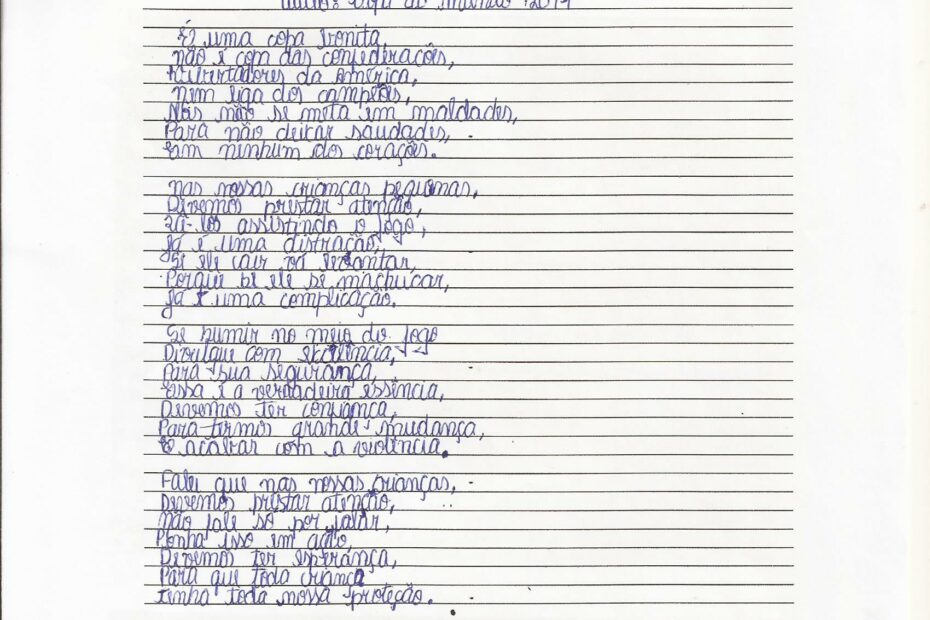 do mundo 2014
É uma copa bonita,
não é copa das confederações,
Libertadores da América,
nem liga dos campeões,
Nois não se meta em maldades,
Para não deixar saudades,
Em ninhum dos corações.
nas nossas crianças pequenas,
Devemos prestar atenção,
assistindo o jogo,
já é uma distração,
Se ele cair vá levantar,
Porque se ele se machucar,
já é uma complicação.
Se sumir no meio do jogo
Divulgue com excelência,
Para sua segurança,
Essa é a verdadeira essência,
Devemos ter confiança,
Para termos grande mudança,
E acabar com a violência.
Falei que nas nossas crianças,
Devemos prestar atenção,
Não fale só por falar,
Ponha isso em ação,
Devemos ter esperança,
Para que toda criança
tenha toda nossa proteção.